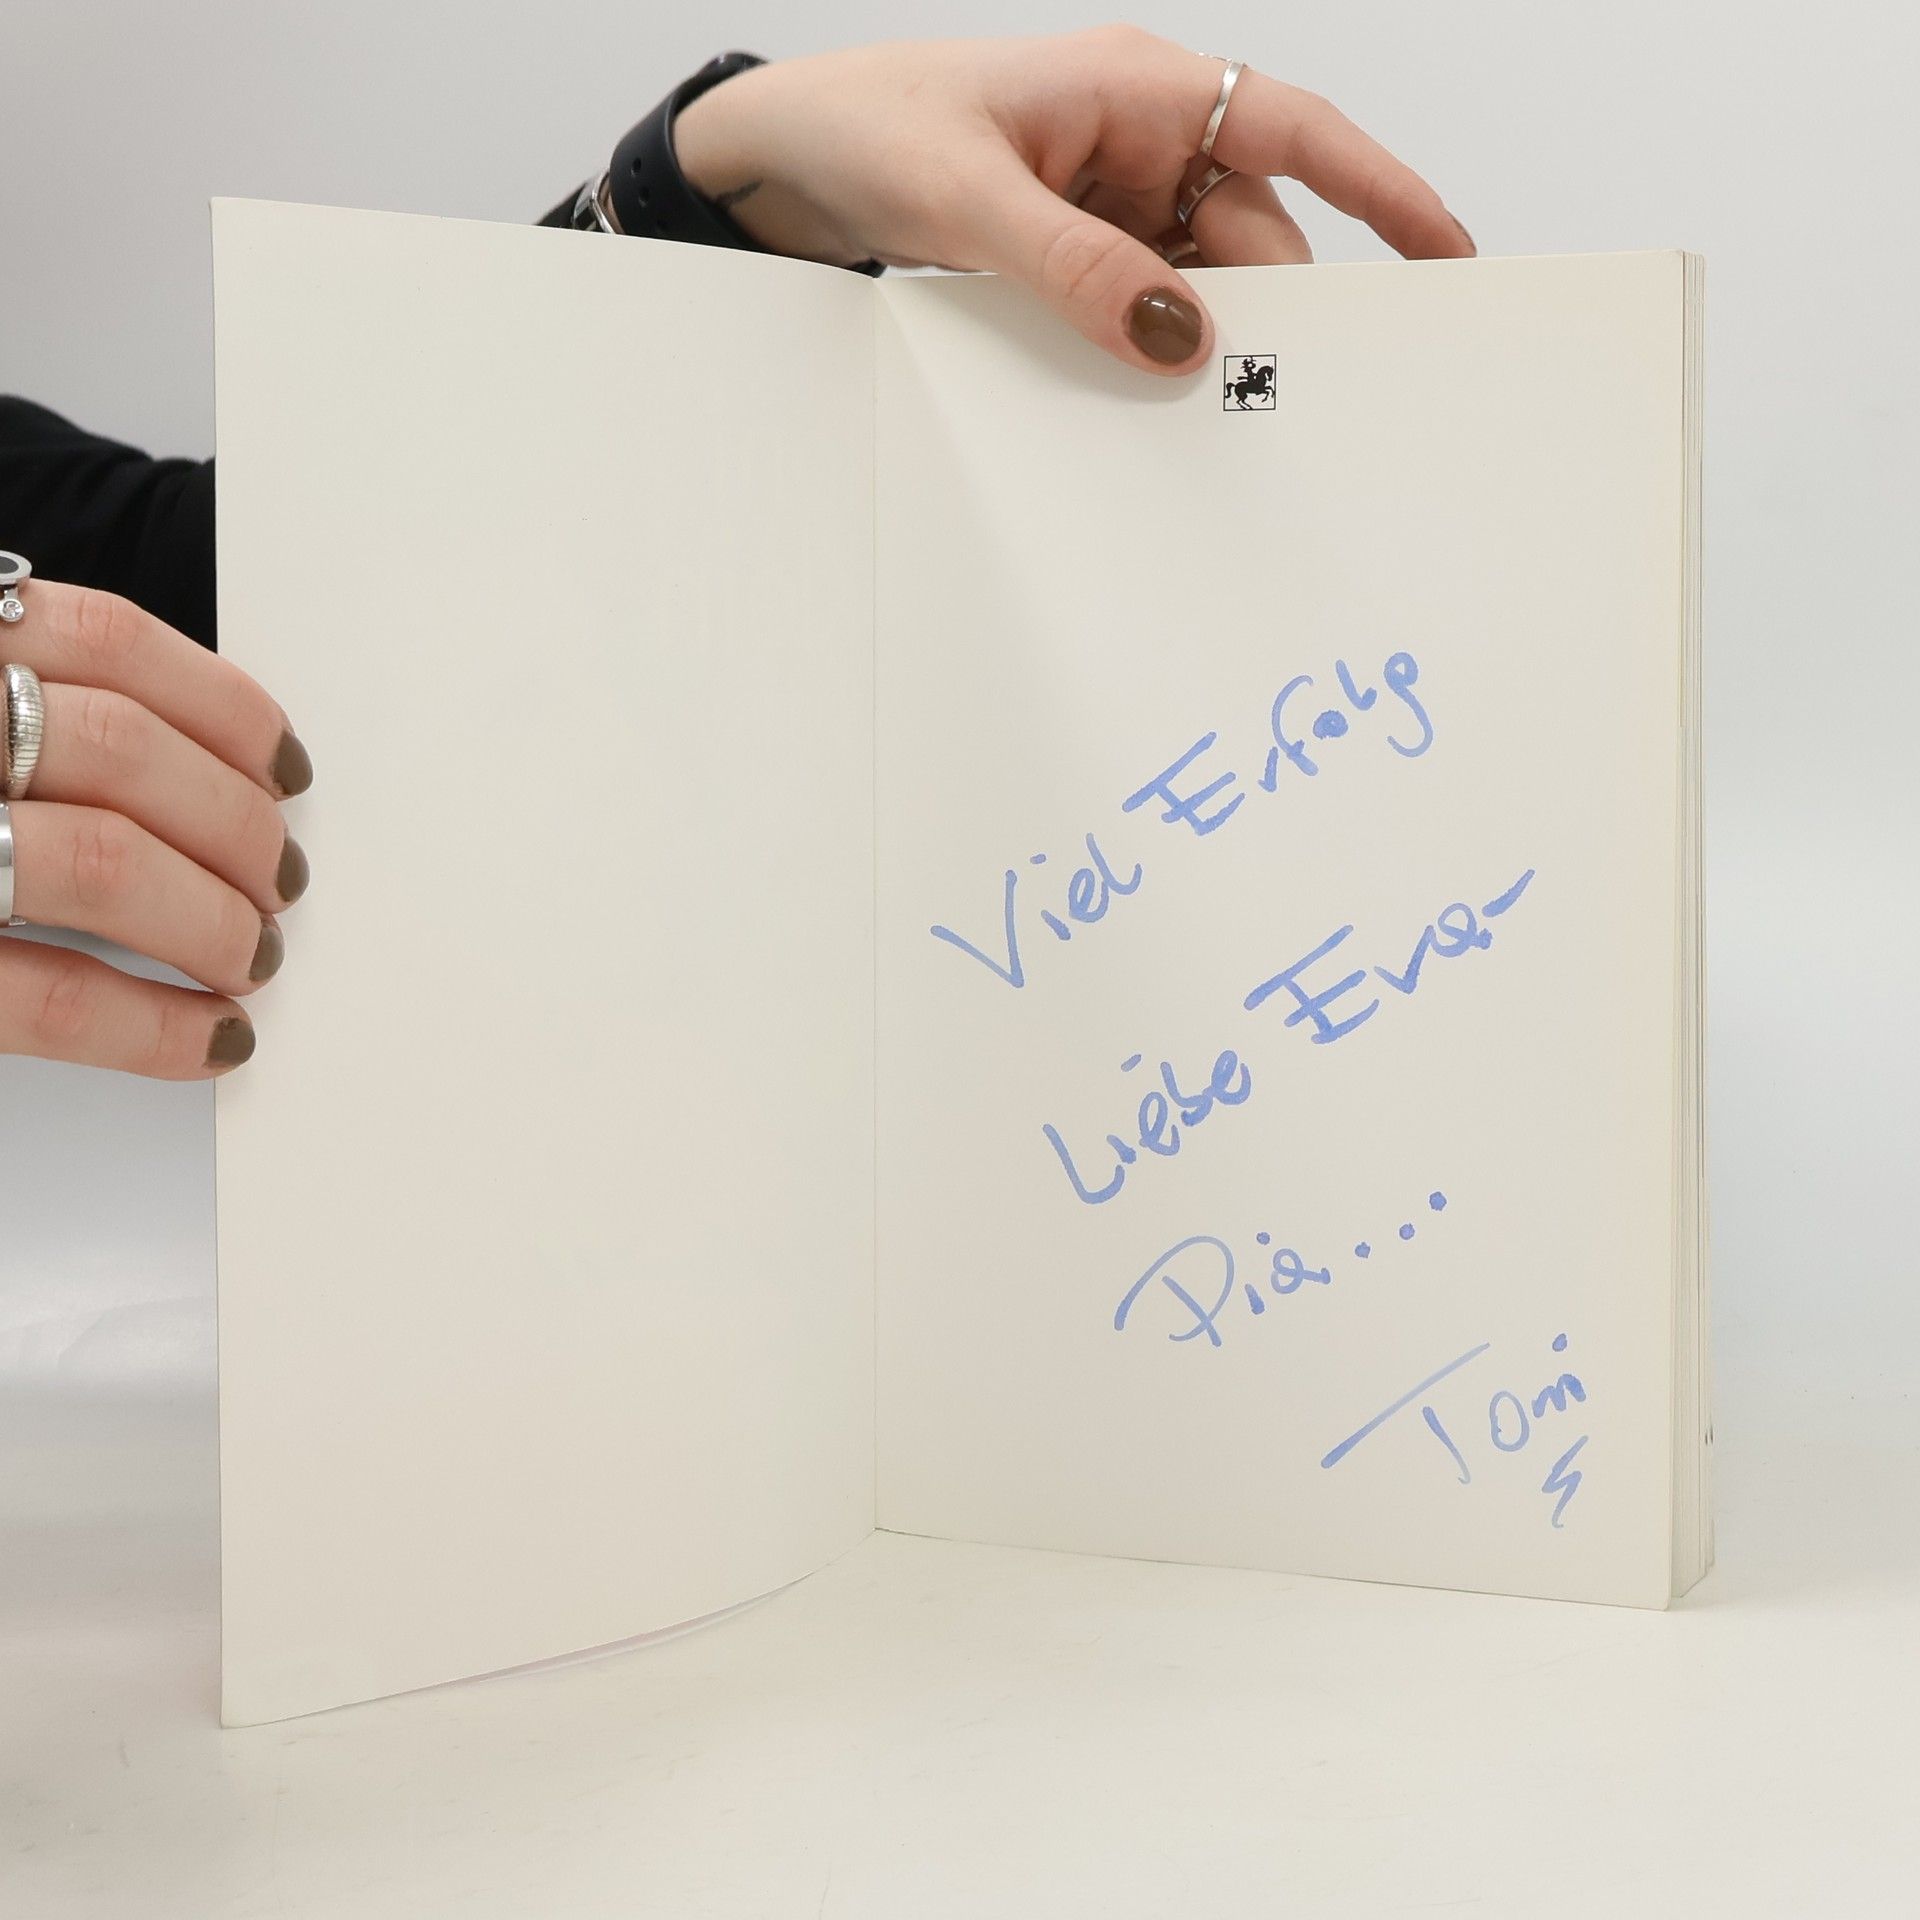 Viel Erfolg
Liebe Eva-
Pia...
Toni